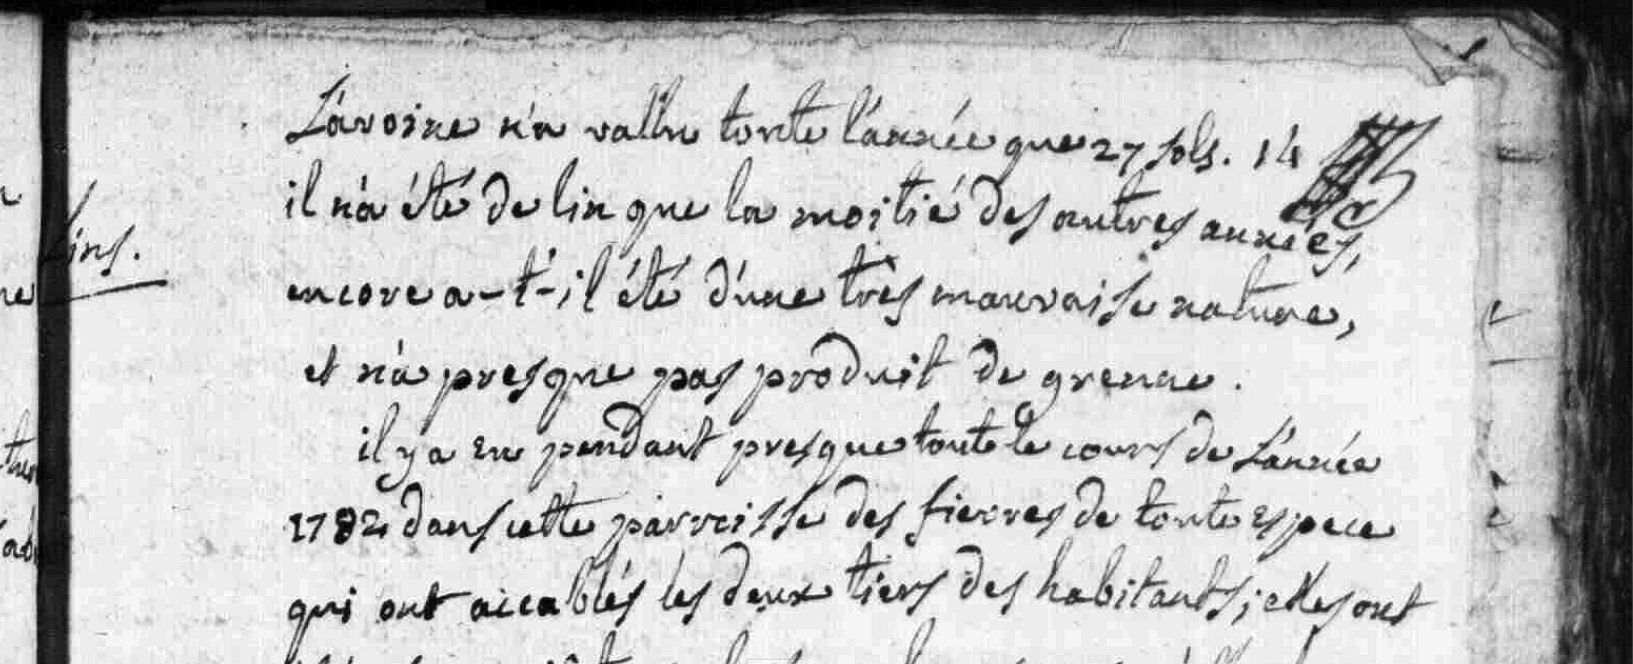 L'avoine n'a vallu toute l'année que 27 sols. 14
il n'a été de lin que la moitié des autres années,
Lins.
encore a-t-il été d'une très mauvaise nature,
et n'a presque pas produit de grenne.
il y a eu pendant presque toute le cours de L'année
1782 dans cette parroisse des fievres de toute espece
qui ont accablés les deux tiers des habitants; elles ont